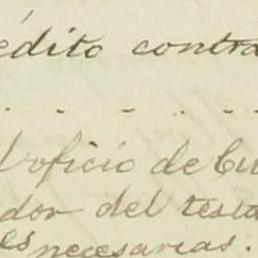 édito contra
. . - . - . .
l oficio de Cu
dor del testa
es necesarias.